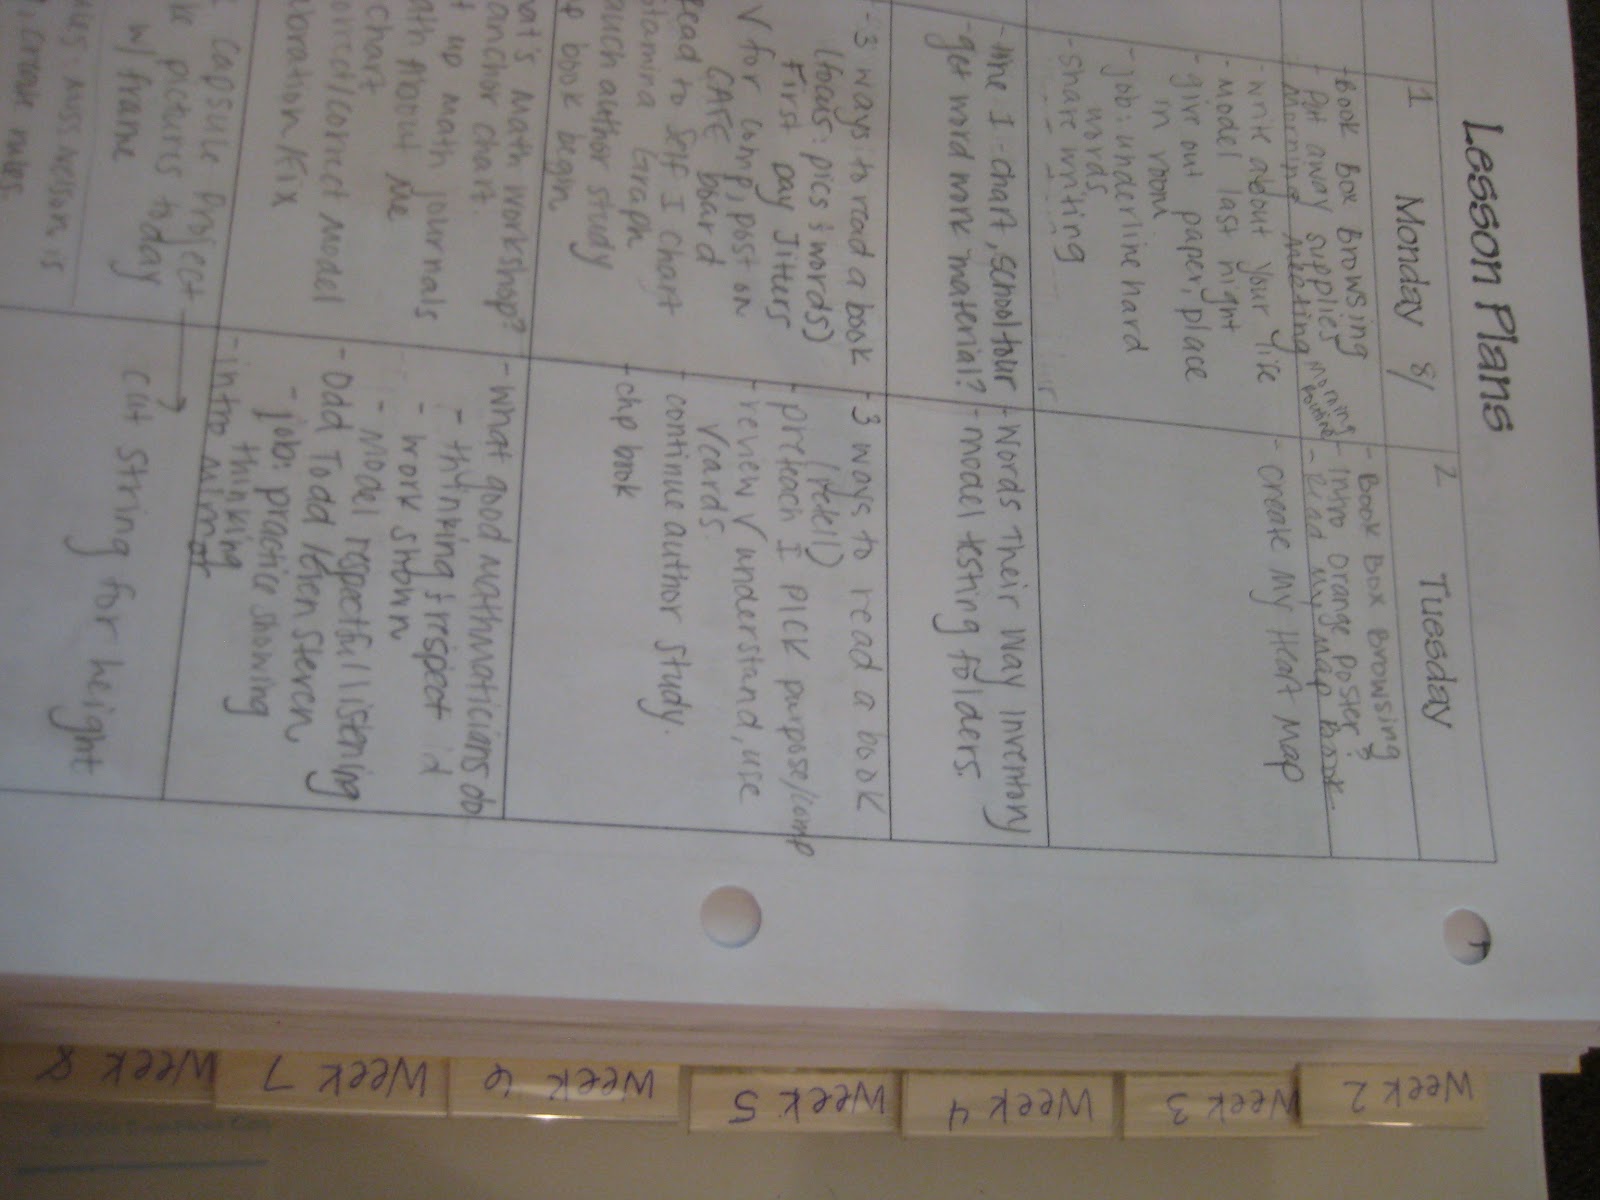 Lesson Plans
1 Monday 8/
- Book Box Browsing
- Put away supplies
Morning Meeting morning
routine
- write about your life
- model last night
- give out paper, place
in room
- job: underline hard
words
- share writing
- the 1-chart, school tour
- get word work material?
- 3 ways to read a book
(focus: pics & words)
First Day Jitters
V for comp, post on
CAFE board
Read to Self I chart
Stamina Graph
author study
book begin
math workshop?
anchor chart.
up math journals
About Me
chart
correct model
Kix
Capsule Project
pictures today
w/ frame
miss nelson is
create rules.
2 Tuesday
- Book Box Browsing
- Intro Orange Poster &
- Read My Map Book
- create My Heart Map
- Words Their Way Inventory
- model testing folders.
- 3 ways to read a book
(retell)
- preteach I PICK purpose/comp
- review V understand, use
Vcards.
- continue author study.
- chp book
- what good mathmaticians do
- thinking & respect is
- work shown
- Model respectful listening
- Odd Todd & Even Steven,
- job: practice showing
thinking
- intro mimot
cut string for height
Week 2
Week 3
Week 4
Week 5
Week 6
Week 7
Week 8